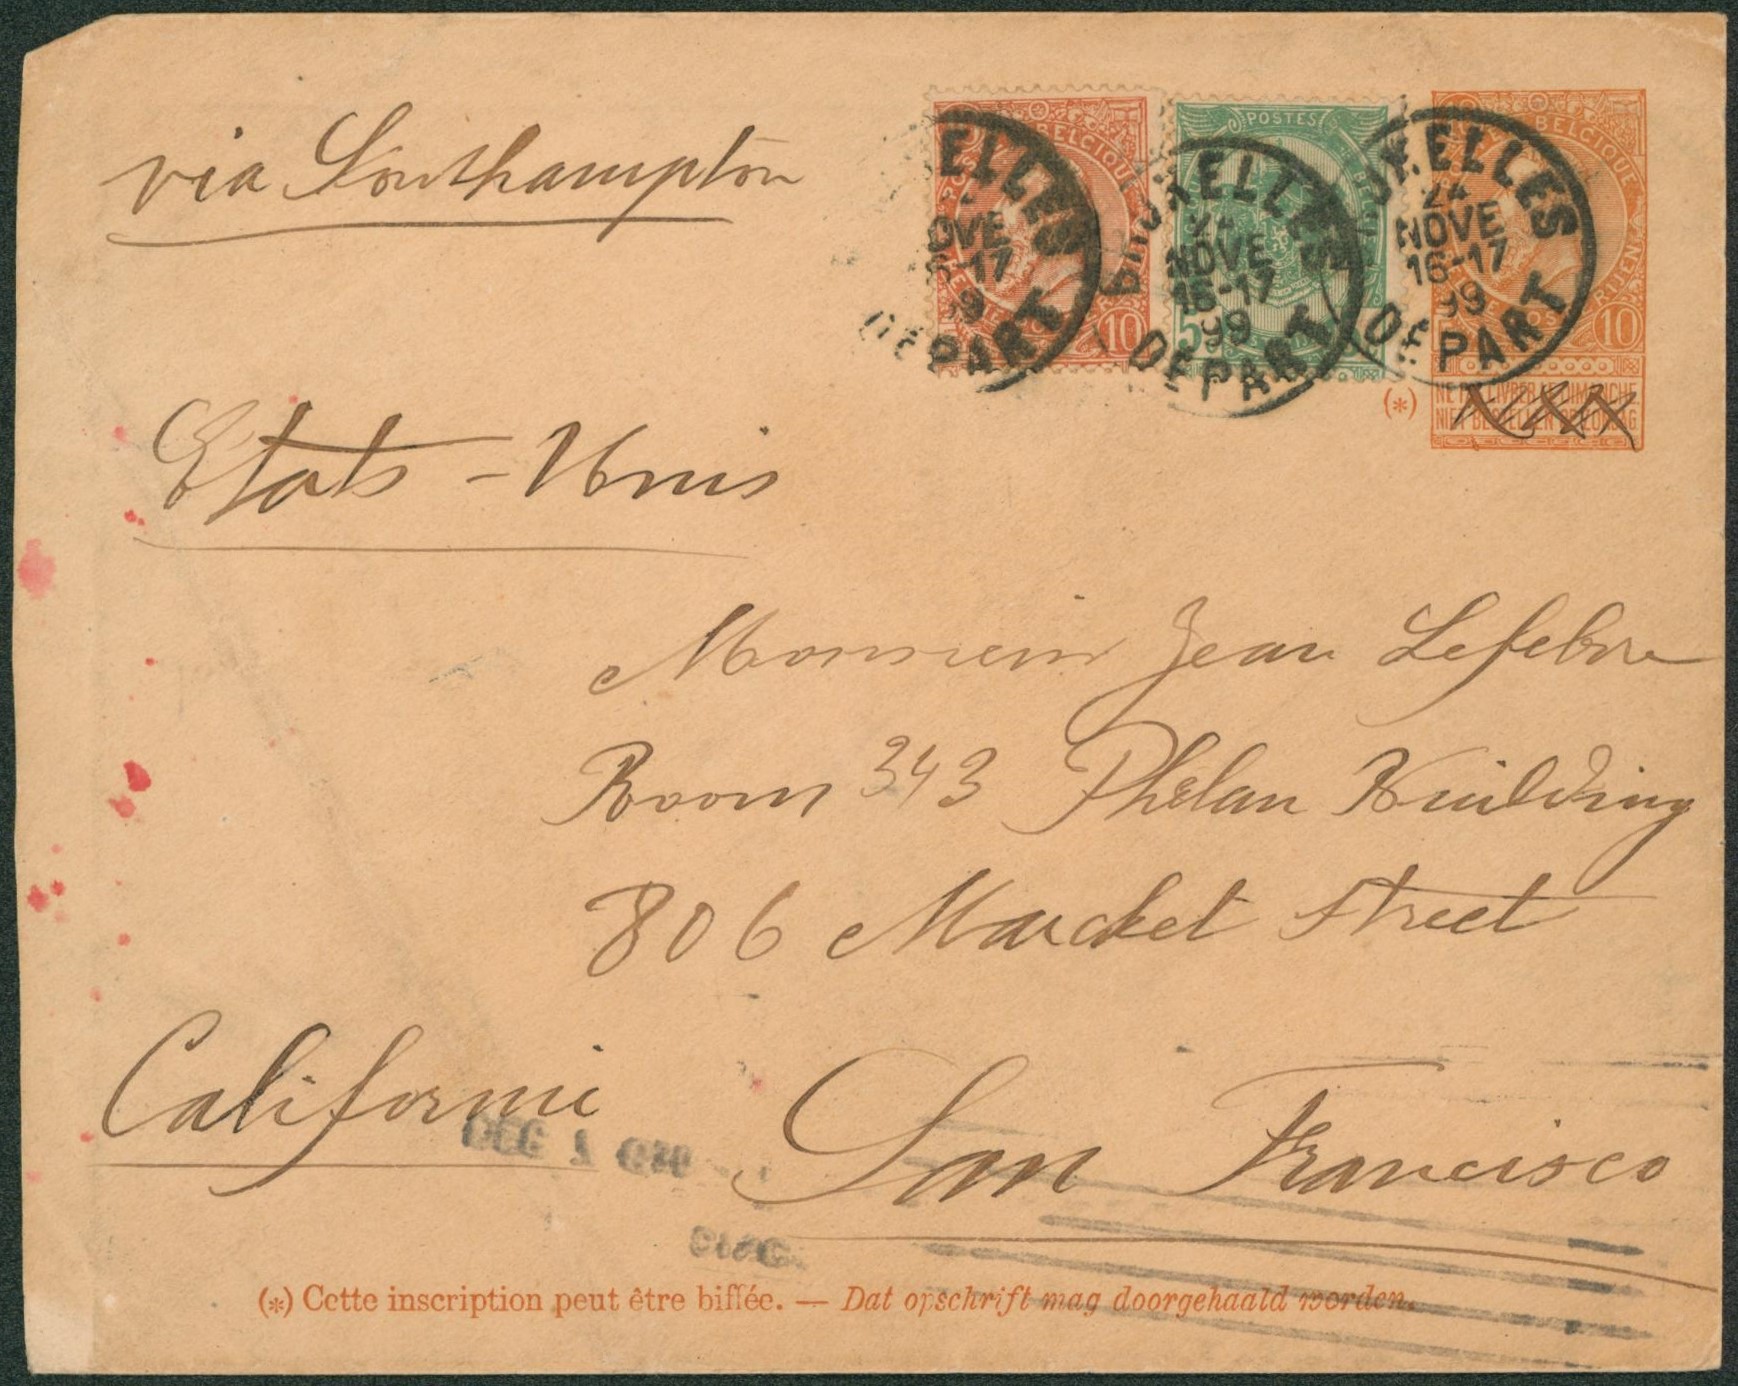 via Southampton
POSTES
BELGIQUE
BELGIQUE
ELLES
OVE
6-17
99
DEPART
10
BRUXELLES
NOVE
16-17
99
DEPART
5
UXELLES
24
NOVE
16-17
99
DEPART
10
(*)
NE PAS LIVRER LE DIMANCHE
NIET BESTELLEN OP ZONDAG
Etats-Unis
Monsieur Jean Lefebvre
Room 343 Phelan Building
806 Marcket Street
Californie
San Francisco
DEC 2
(*) Cette inscription peut être biffée. — Dat opschrift mag doorgehaald worden.